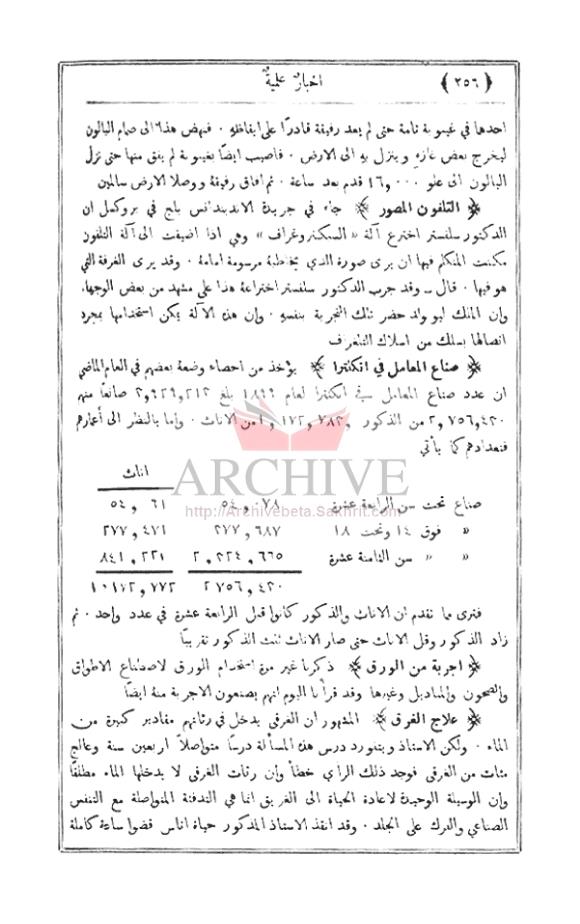 ﴿ ٢٥٦ ﴾ اخبارٌ علميةٌ
احدها في غيبوبة تامة حتى لم يعد رفيقة قادرًا على ايقاظهِ ٠ فنهض هذا الى صمام البالون
ليخرج بعض غازهِ وينزل بهِ الى الارض ٠ فاصيب ايضًا بغيبوبة لم يفق منها حتى نزل
البالون الى علو ١٦٬٠٠٠ قدم بعد ساعة ٠ ثم افاق رفيقة ووصلا الارض سالمين
﴿ التلفون المصور ﴾ جاء في جريدة الاندبندانس بلج في بروكسل ان
الدكتور سلفستر اخترع آلة «السكتروغراف» وهي اذا اضيفت الى آلة التلفون
مكنت المتكلم فيها ان يرى صورة الذي يخاطبة مرسومة امامة ٠ وقد يرى الغرفة التي
هو فيها ٠ قال ــ وقد جرب الدكتور سلفستر اختراعة هذا على مشهد من بعض الوجهاء
وان الملك ليوبولد حضر تلك التجربة بنفسهِ ٠ وان هذه الآلة يمكن استخدامها بمجرد
اتصالها بسلك من اسلاك التلغراف
﴿ صناع المعامل في انكلترا ﴾ يؤخذ من احصاء وضعة بعضهم في العام الماضي
ان عدد صناع المعامل في انكلترا لعام ١٨٩٩ بلغ ٣٬٩٢٩٬٢١٢ صانعًا منهم
٢٬٧٥٦٬٤٣٠ من الذكور و ١٬١٧٢٬٧٨٢ من الاناث ٠ واما بالنظر الى أعمارهم
فتعدادهم كما يأتي
ARCHIVE
http://Archivebeta.Sakhrit.com
اناث
صناع تحت سن الرابعة عشرة ٥٤٬٠٧٨ ٥٤٬٠٦١
« فوق ١٤ وتحت ١٨ ٢٧٧٬٦٨٧ ٢٧٧٬٤٧١
« « سن الثامنة عشرة ٢٬٢٢٤٬٦٦٥ ٨٤١٬٢٣١
٢٧٥٦٬٤٣٠
فترى مما تقدم ان الاناث والذكور كانوا قبل الرابعة عشرة في عدد واحد ٠ ثم
زاد الذكور وقل الاناث حتى صار الاناث ثلث الذكور تقريبًا
﴿ اجربة من الورق ﴾ ذكرنا غير مرة استخدام الورق لاصطناع الاطواق
والصحون والمناديل وغيرها وقد قرأنا اليوم انهم يصنعون الاجربة منة ايضًا
﴿ علاج الغرق ﴾ المشهور ان الغرقى يدخل في رئاتهم مقادير كبيرة من
الماء ٠ ولكن الاستاذ درس هذه المسألة درسًا متواصلاً اربعين سنة وعالج
مئات من الغرقى فوجد ذلك الراي خطأ وان رئات الغرقى لا يدخلها الماء مطلقًا
وان الوسيلة الوحيدة لاعادة الحياة الى الغريق انما هي التدفئة المتواصلة مع التنفس
الصناعي والفرك على الجلد ٠ وقد انقذ الاستاذ المذكور حياة اناس قضوا ساعة كاملة